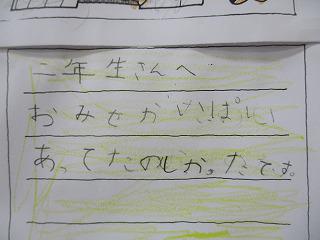 二年生さんへ
おみせがいっぱい
あってたのしかったです。